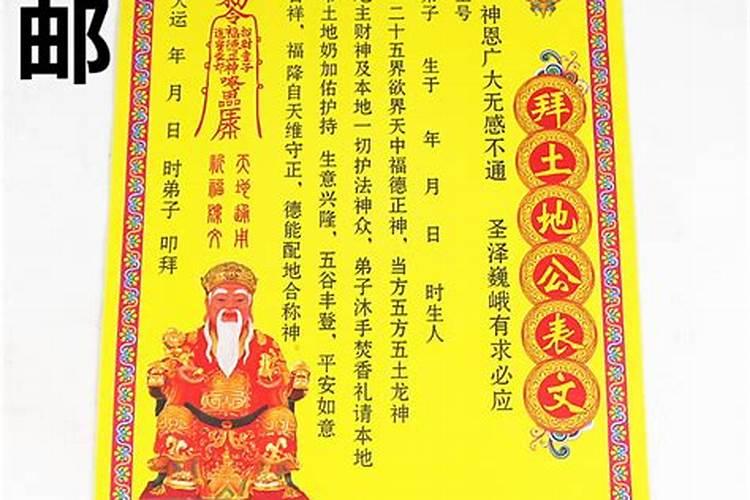 邮
拜土地公表文
神恩广大无感不通 圣泽巍峨有求必应
弟子 生于 年 月 日 时生人
二十五界欲界天中福德正神，当方五方五土龙神
主财神及本地一切护法神众，弟子沐手焚香礼请本地
土地奶加佑护持 生意兴隆，五谷丰登，平安如意
祥，福降自天维守正，德能配地合称神。
大运 年 月 日 时弟子 叩拜